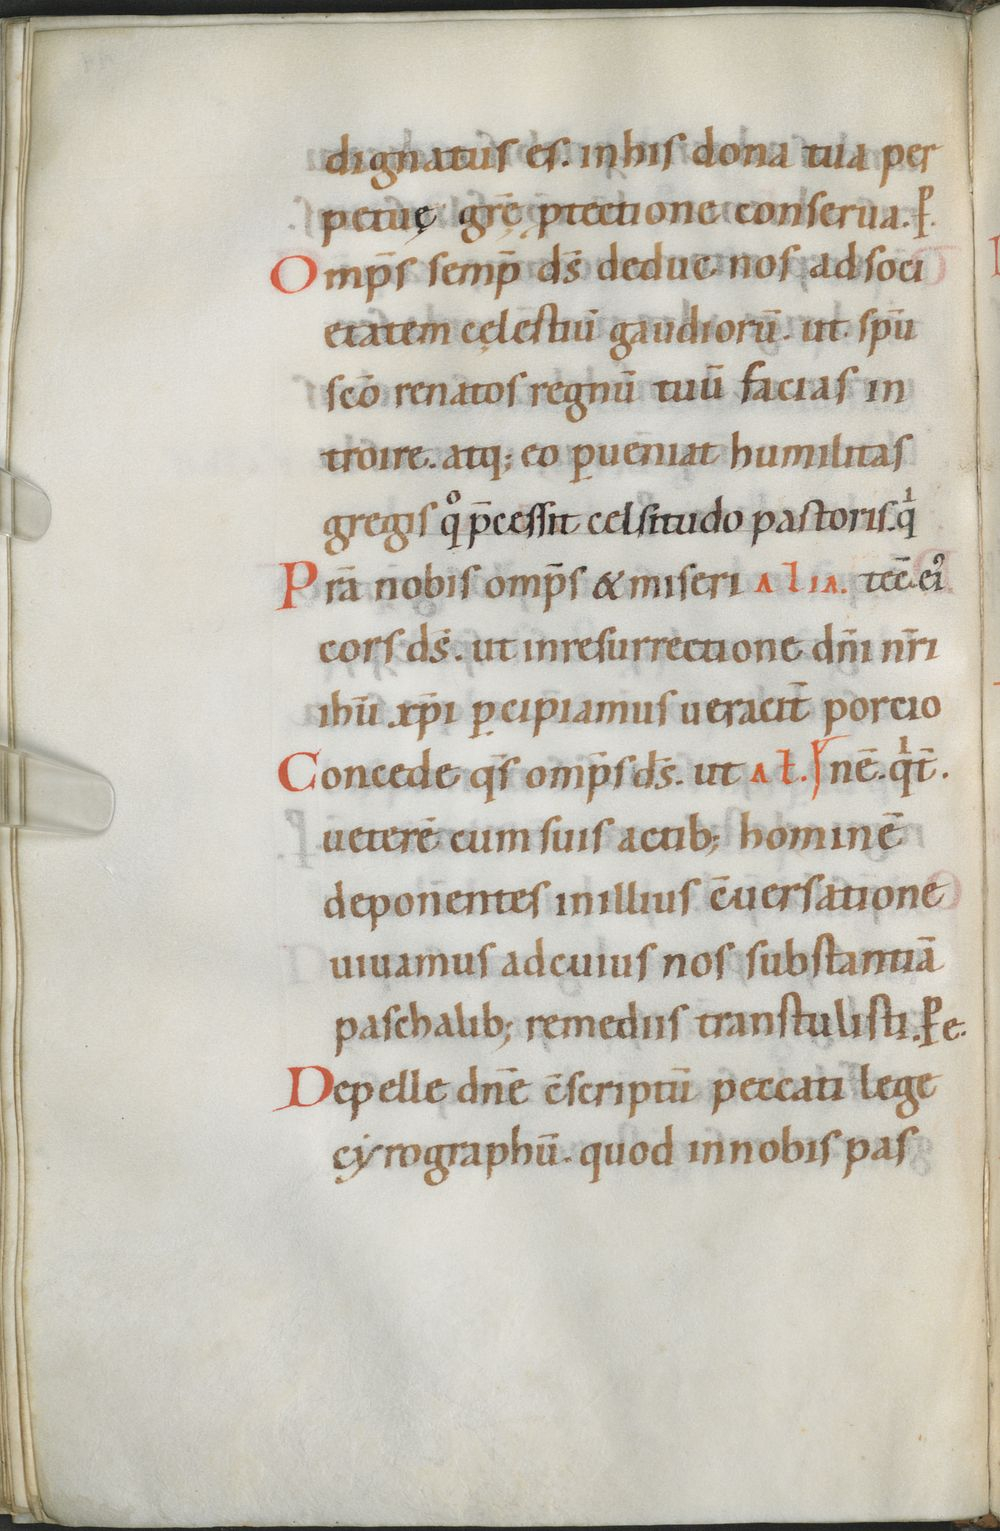 dignatus es. in his dona tua per
petuę grę̄ ꝓtectione conserua. P̱.
Omp̄s semp̄ ds̄ deduc nos ad soci
etatem cęlestiū gaudiorū. ut sp̄u
scō renatos regnū tuū facias in
troire. atq; eo ꝑueniat humilitas
gregis qͦ p̄cessit celsitudo pastoris. qͥ
Prā nobis omp̄s & miseri alia. tec̄. ei᾿
cors ds̄. ut in resurrectione dn̄i nr̄i
ihū xp̄i ꝑcipiamus ueracit̄ porcio
Concede qs̄ omp̄s ds̄. ut al̄. nē. qͥ t̄.
ueterē cum suis actib; hominē
deponentes in illius c̄uersatione
uiuamus ad cuius nos substantiā
paschalib; remediis transtulisti. P̱ e.
Depelle dn̄e c̄scriptū peccati lege
cyrographū. quod in nobis pas